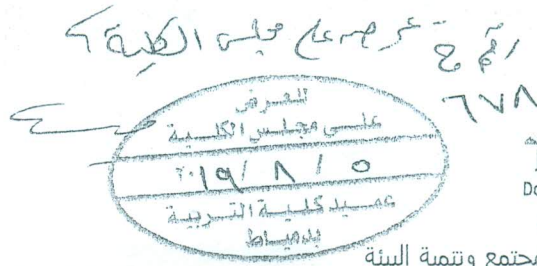 عرضه على مجلس الكلية
٦٧٨
للعرض
على مجلس الكلية
٥ / ٨ / ٢٠١٩
عميد كلية التربية
بدمياط
Do
مجتمع وتنمية البيئة